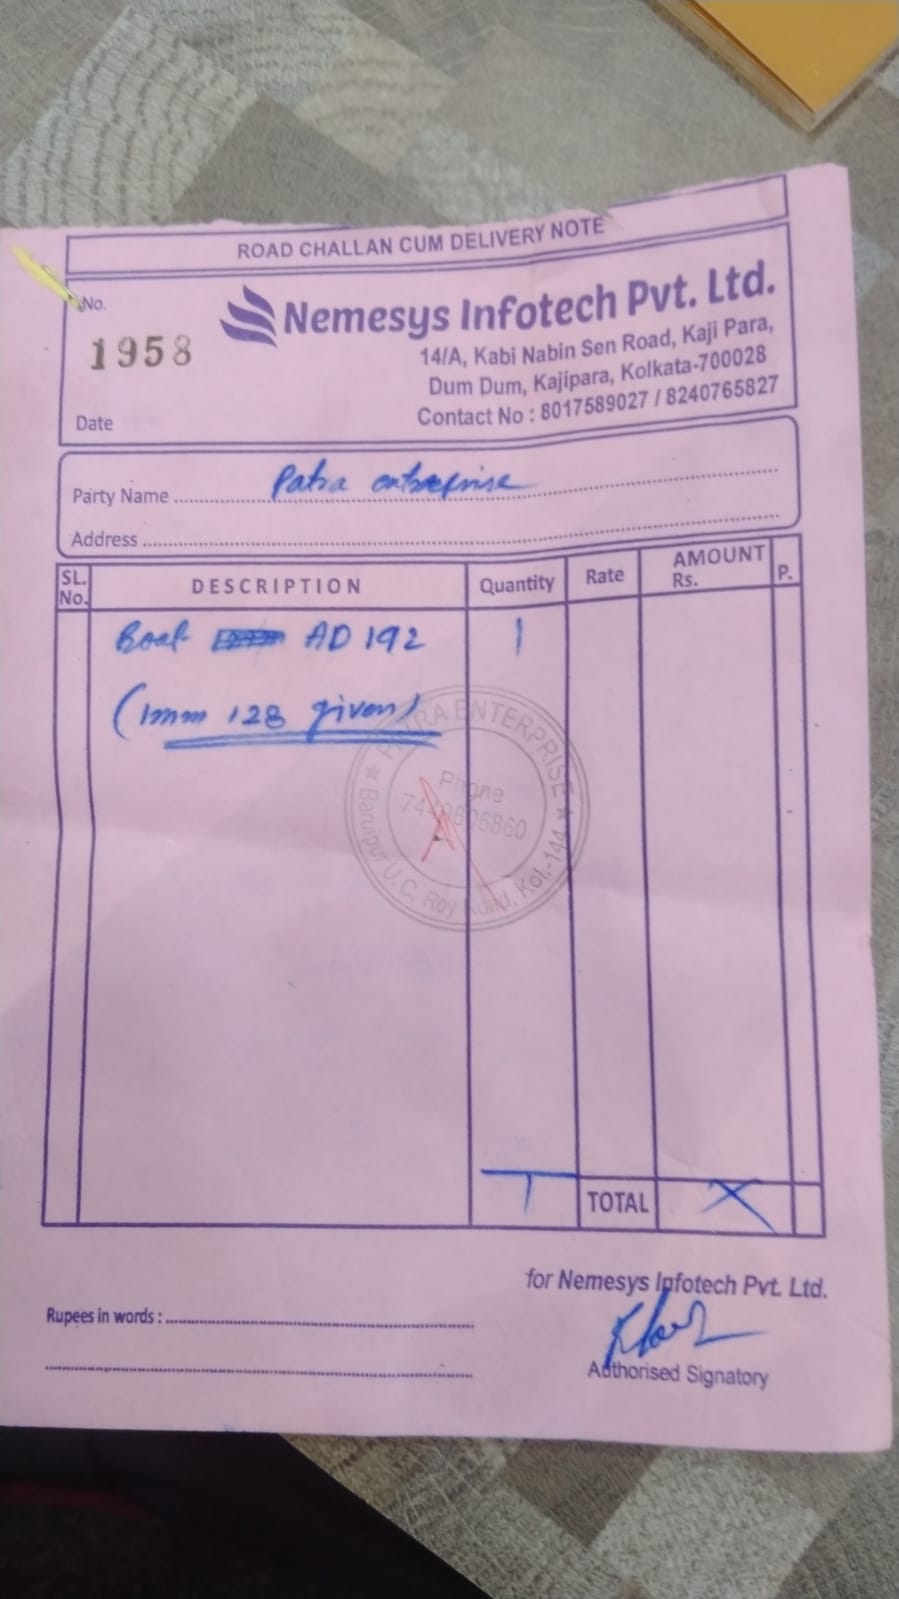 ROAD CHALLAN CUM DELIVERY NOTE
No.
1958
Nemesys Infotech Pvt. Ltd.
14/A, Kabi Nabin Sen Road, Kaji Para,
Dum Dum, Kajipara, Kolkata-700028
Contact No : 8017589027 / 8240765827
Date
Party Name Patra enterprise
Address
SL. No. DESCRIPTION Quantity Rate AMOUNT Rs. P.
Boat AD 192 1
(Imm 128 given)
PATRA ENTERPRISE
Phone
Baruipur U.C. Roy Road, Kol.-144
1 TOTAL X
for Nemesys Infotech Pvt. Ltd.
Rupees in words :
Authorised Signatory